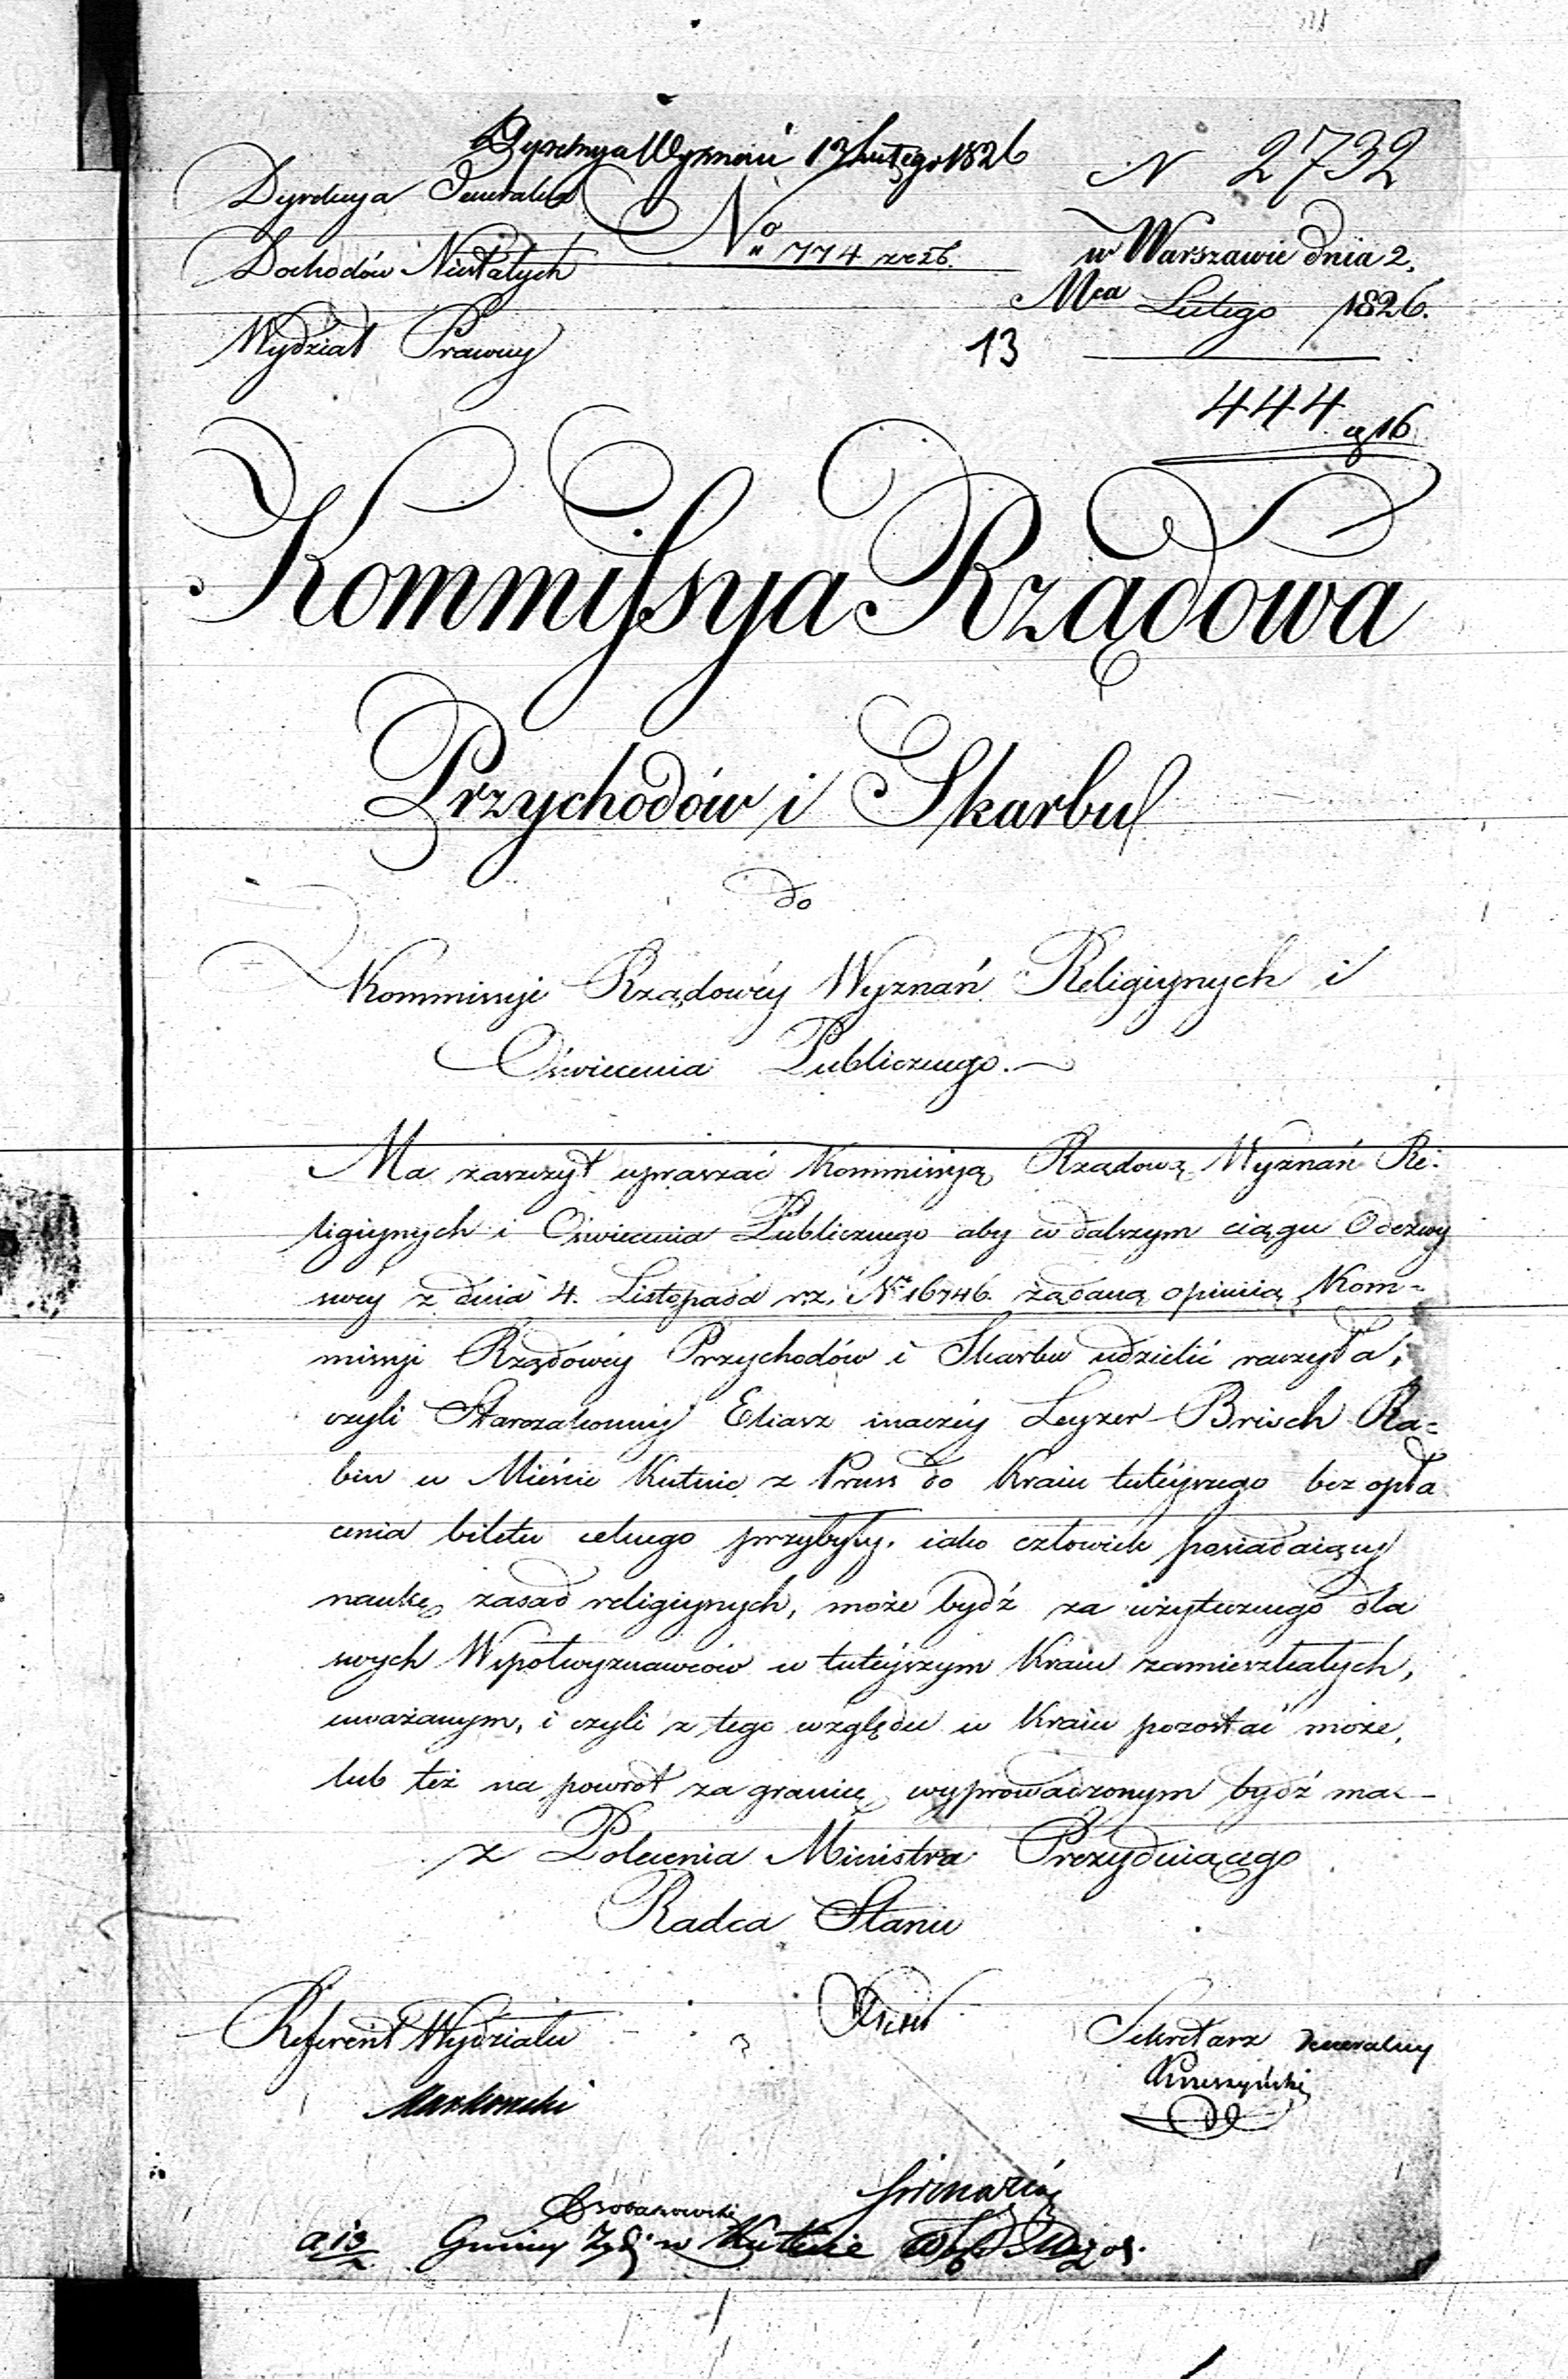 Dyrekcya Wyznań 13 Lutego 1826
N 2732
Dyrekcya Generalna
No 774 ze 26.
w Warszawie dnia 2.
Dochodów Niestałych
Mca Lutego 1826.
Wydział Prawny
13
444
16
Kommissya Rządowa
Przychodów i Skarbu
do
Kommissyi Rządowéy Wyznań Religiynych i
Oświecenia Publicznego.
Ma zaszczyt upraszać Kommissyią Rządową Wyznań Re-
ligiynych i Oświecenia Publicznego aby w dalszym ciągu Odezwy
swey z dnia 4. Listopada r. z. Nr 16746. żądaną opinią Kom-
missyi Rządowéy Przychodów i Skarbu udzielić raczyła,
czyli Starozakonny Eliasz inaczéy Leyzer Brisch Ra-
bin w Mieście Kutnie z Pruss do Kraiu tutéyszego bez opła
cenia biletu celnego przybyły, iako człowiek posiadaiący
naukę zasad religiynych, może bydź za użytecznego dla
swych Wspołwyznawców w tutéyszym Kraiu zamieszkałych,
uważanym, i czyli z tego względu w Kraiu pozostać może,
lub też na powrót za granicę wyprowadzonym bydź ma-
z Polecenia Ministra Prezyduiącego
Radca Stanu
Referent Wydziału
Sekretarz Generalny
Markowski
Gminy Żyd. w Kutnie